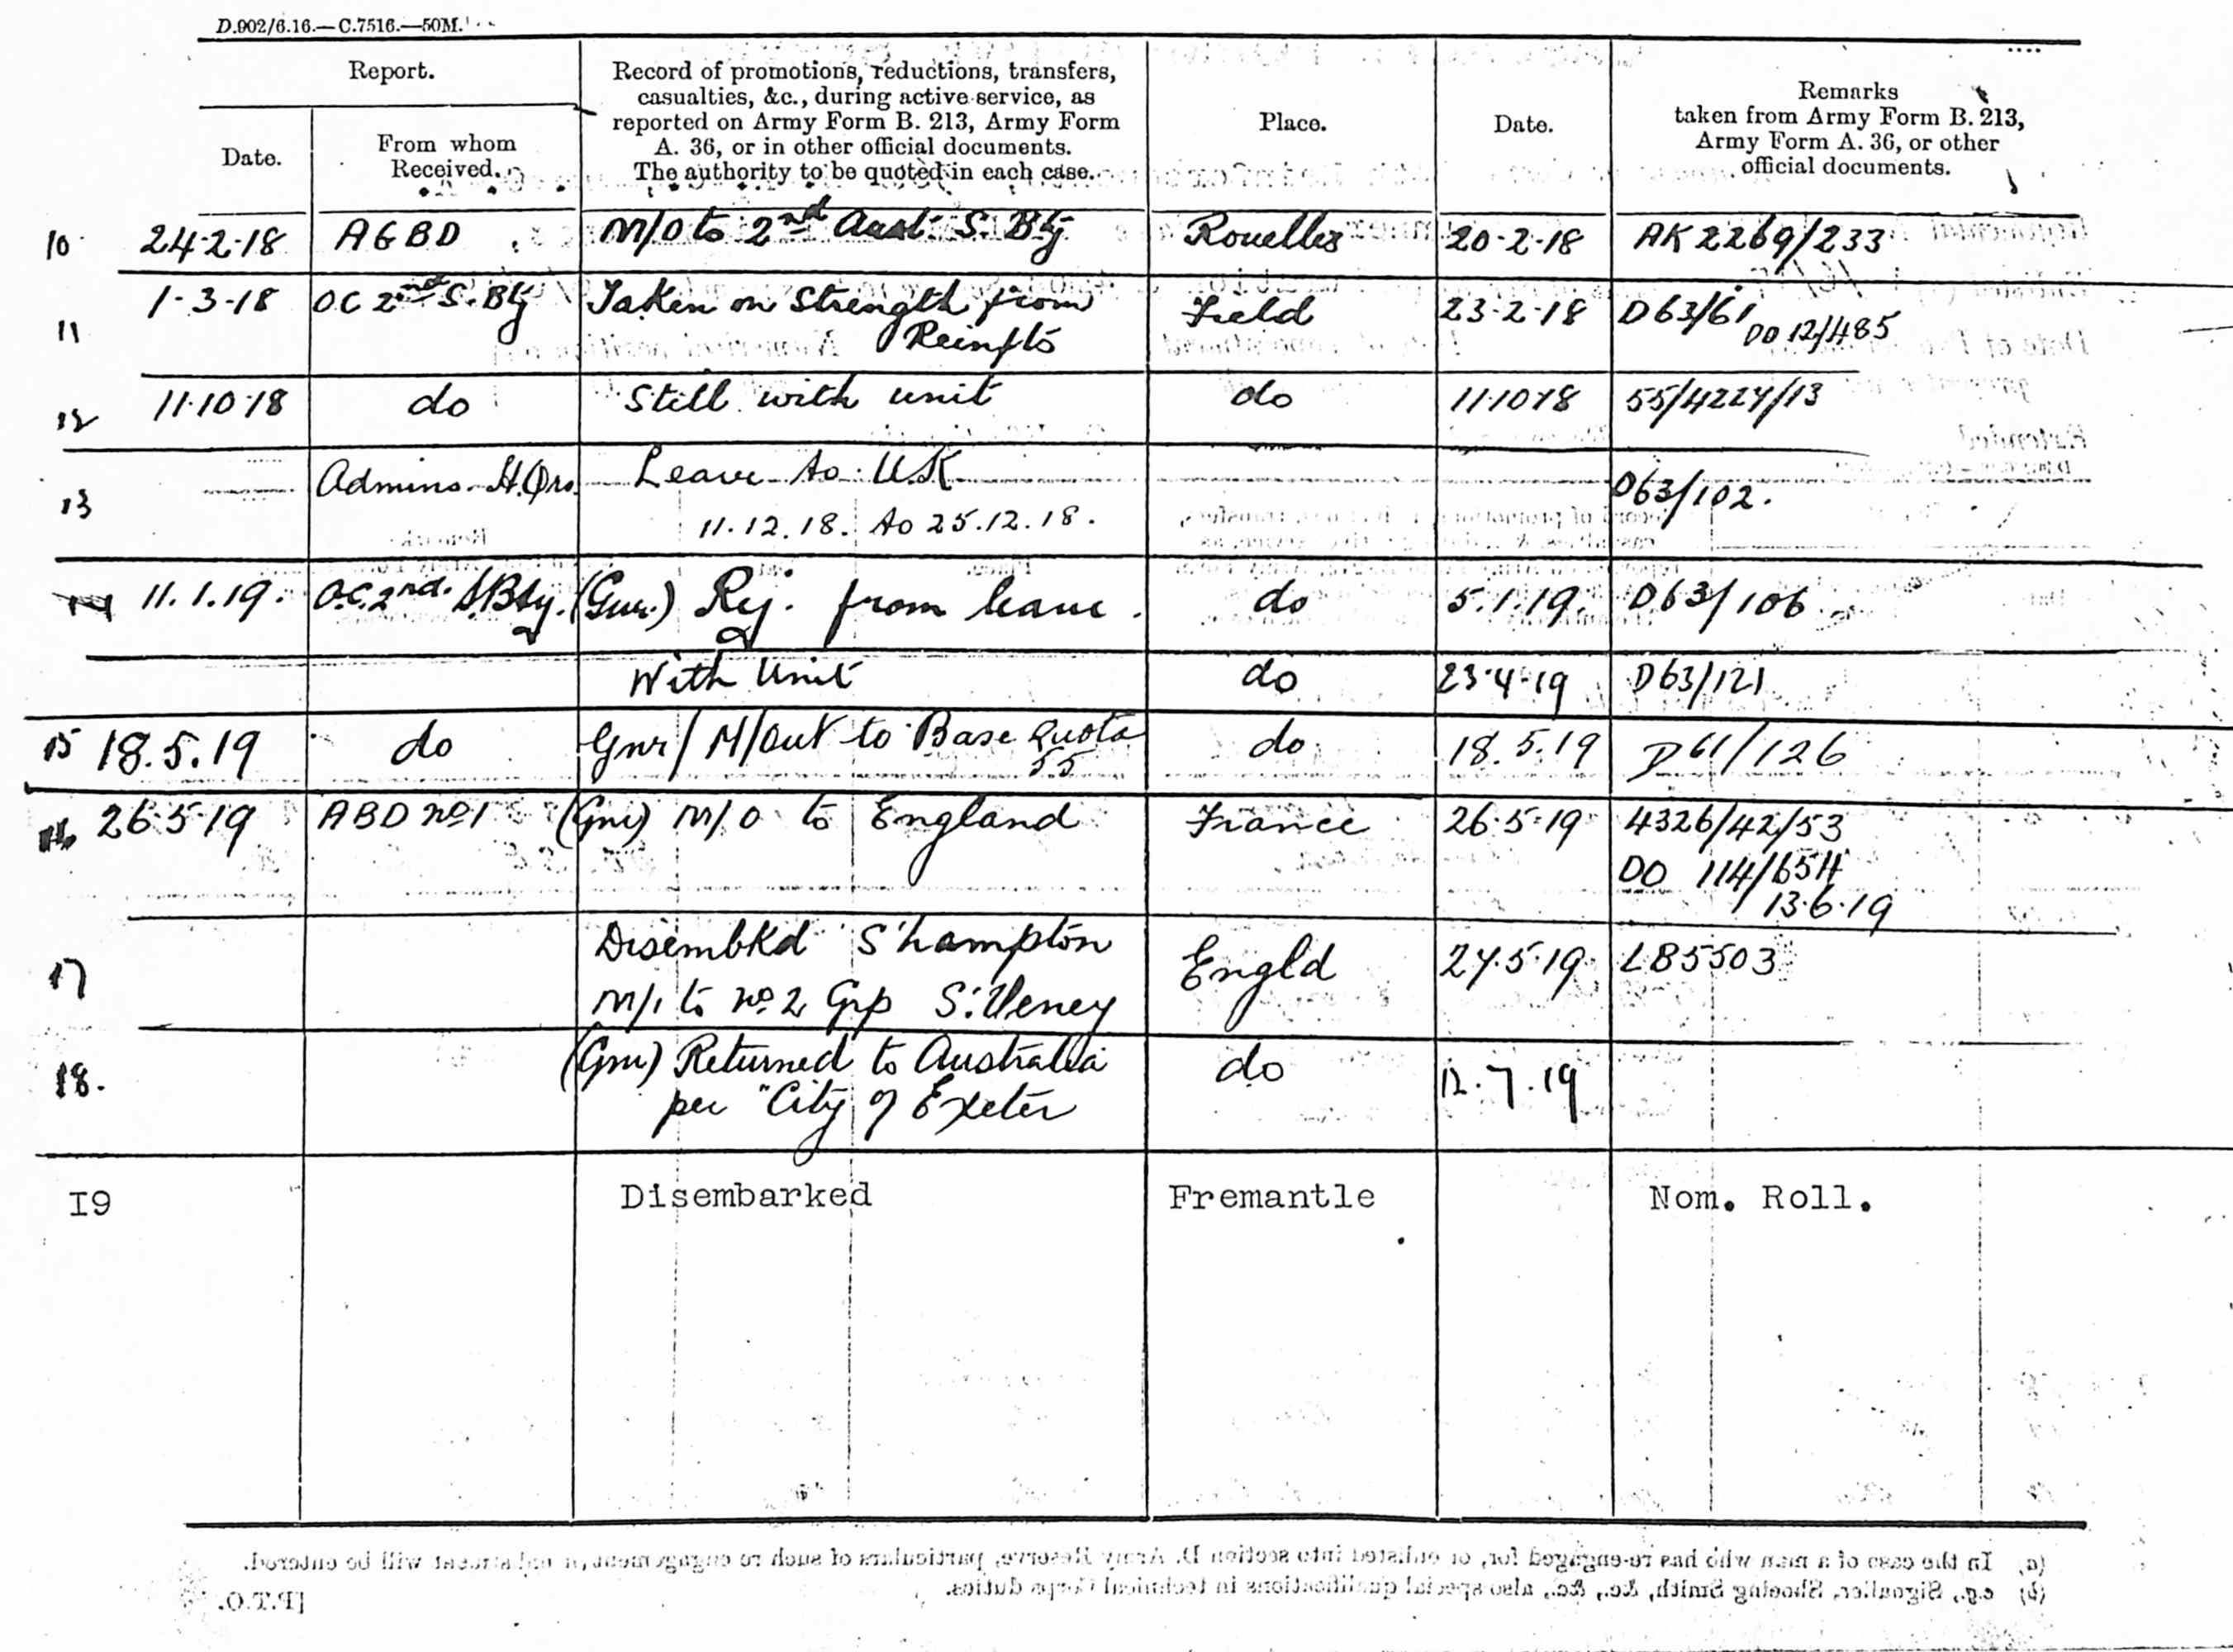 D.902/6.16.—C.7516.—50M.
Report.
Date.
From whom
Received.
Record of promotions, reductions, transfers,
casualties, &c., during active service, as
reported on Army Form B. 213, Army Form
A. 36, or in other official documents.
The authority to be quoted in each case.
Place.
Date.
Remarks
taken from Army Form B. 213,
Army Form A. 36, or other
official documents.
10 24·2·18 AGBD M/O to 2nd Aust. S. Bty Rouelles 20·2·18 AK 2269/233
11 1·3·18 OC 2nd S. Bty Taken on Strength from Field 23·2·18 D63/61
Reinfts DO 12/485
12 11·10·18 do Still with unit do 11·10·18 55/4227/13
13 Admins. H.Qrs. Leave to U.K. D63/102.
11.12.18. to 25.12.18.
14 11.1.19. O.C. 2nd. S.Bty. (Gnr.) Rej. from leave. do 5.1.19. D63/106
With Unit do 23·4·19 D63/121
15 18.5.19 do Gnr/ M/Out to Base Quota do 18.5.19 D61/126
55
16 26·5·19 ABD No 1 (Gnr) M/O to England France 26·5·19 4326/42/53
DO 114/6514
13·6·19
17 Disembkd S'hampton Engld 27·5·19 L85503
M/I to No. 2 Grp S. Veney
18. (Gnr) Returned to Australia do 12.7.19
per "City of Exeter
I9 Disembarked Fremantle Nom. Roll.
(a) In the case of a man who has re-engaged for, or enlisted into section D. Army Reserve, particulars of such re-engagement or enlistment will be entered.
(b) e.g., Signaller, Shoeing Smith, &c., &c., also special qualifications in technical Corps duties.
[P.T.O.